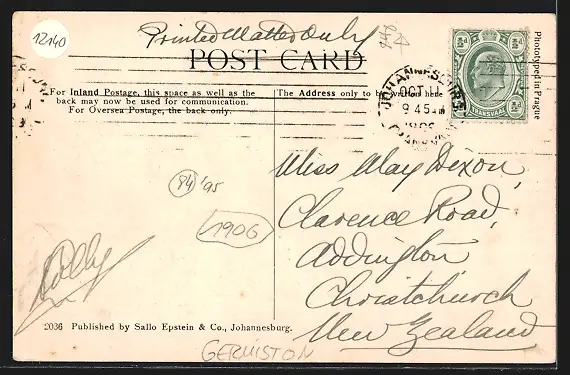 12140
Printed Matter Only
POST CARD
For Inland Postage, this space as well as the
back may now be used for communication.
For Oversea Postage, the back only.
The Address only to be written here
JOHANNESBURG
OCT
9 45 AM
TRANSVAAL
Phototyped in Prague
Miss May Dixon,
Clarence Road,
Addington
Christchurch
New Zealand
84 '95
1906
Dolly
2036 Published by Sallo Epstein & Co., Johannesburg.
GERMISTON